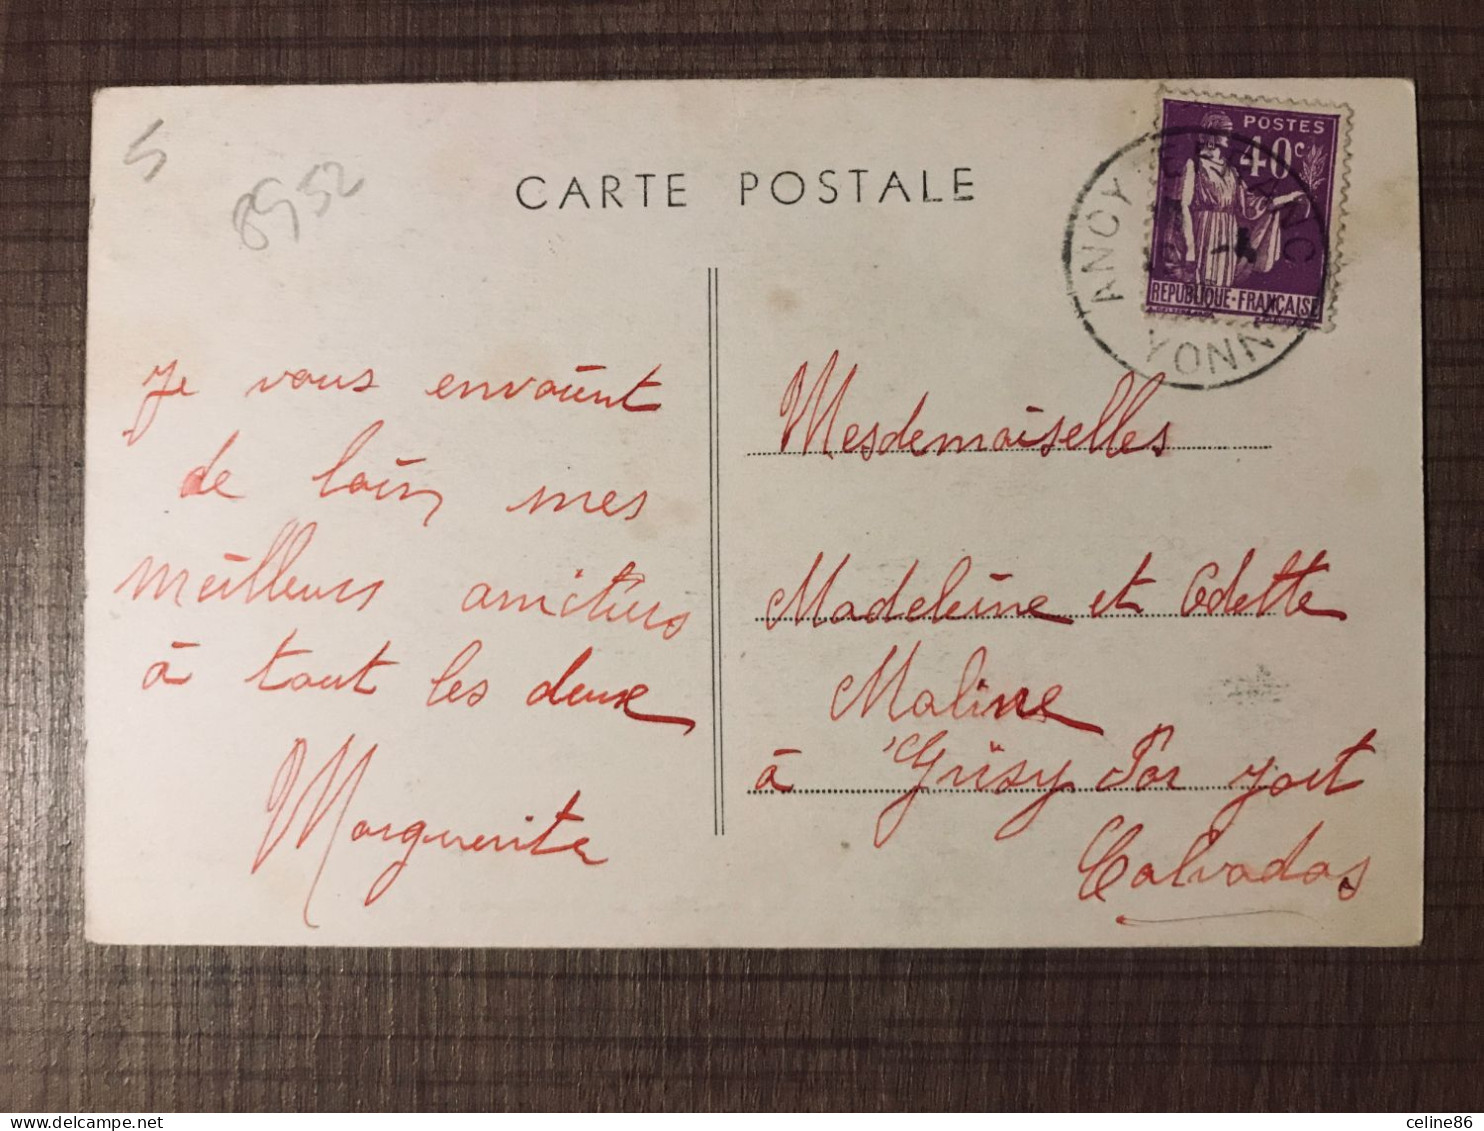 5
8952
CARTE POSTALE
POSTES
40c
REPUBLIQUE-FRANÇAISE
ANCY-LE-FRANC
YONNE
Je vous envoient
de loin mes
meilleurs amitiers
à tout les deux
Marguerite
Mesdemoiselles
Madeleine et Odette
Maline
à Grisy Par Jort
Calvados
celine86